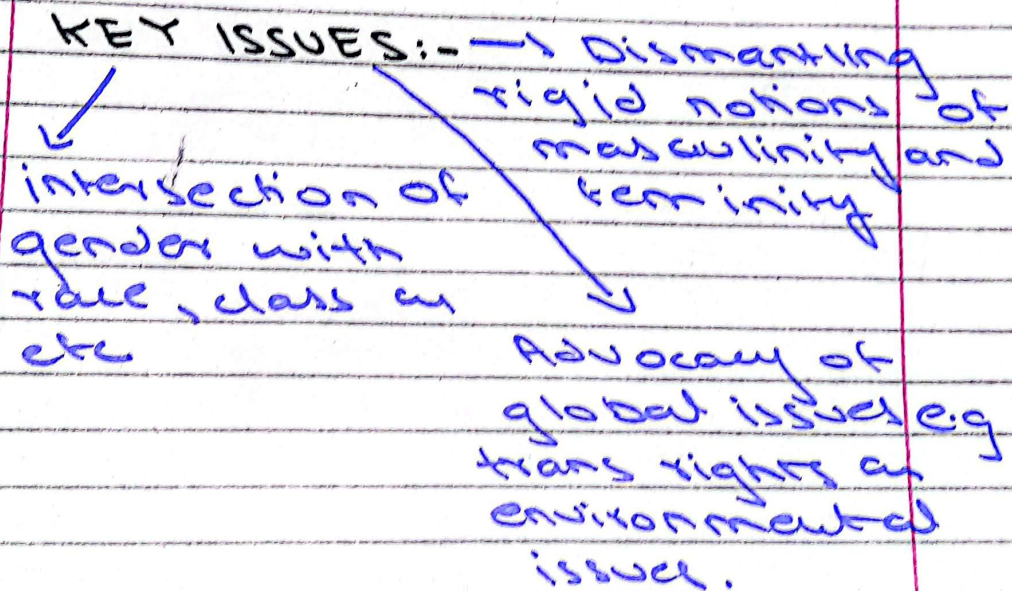 KEY ISSUES:- → Dismantling
rigid notions of
masculinity and
feminity
intersection of
gender with
race, class an
etc
Advocacy of
global issues e.g
trans rights an
environmental
issues.